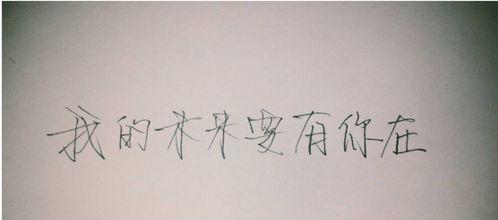 我的未来要有你在